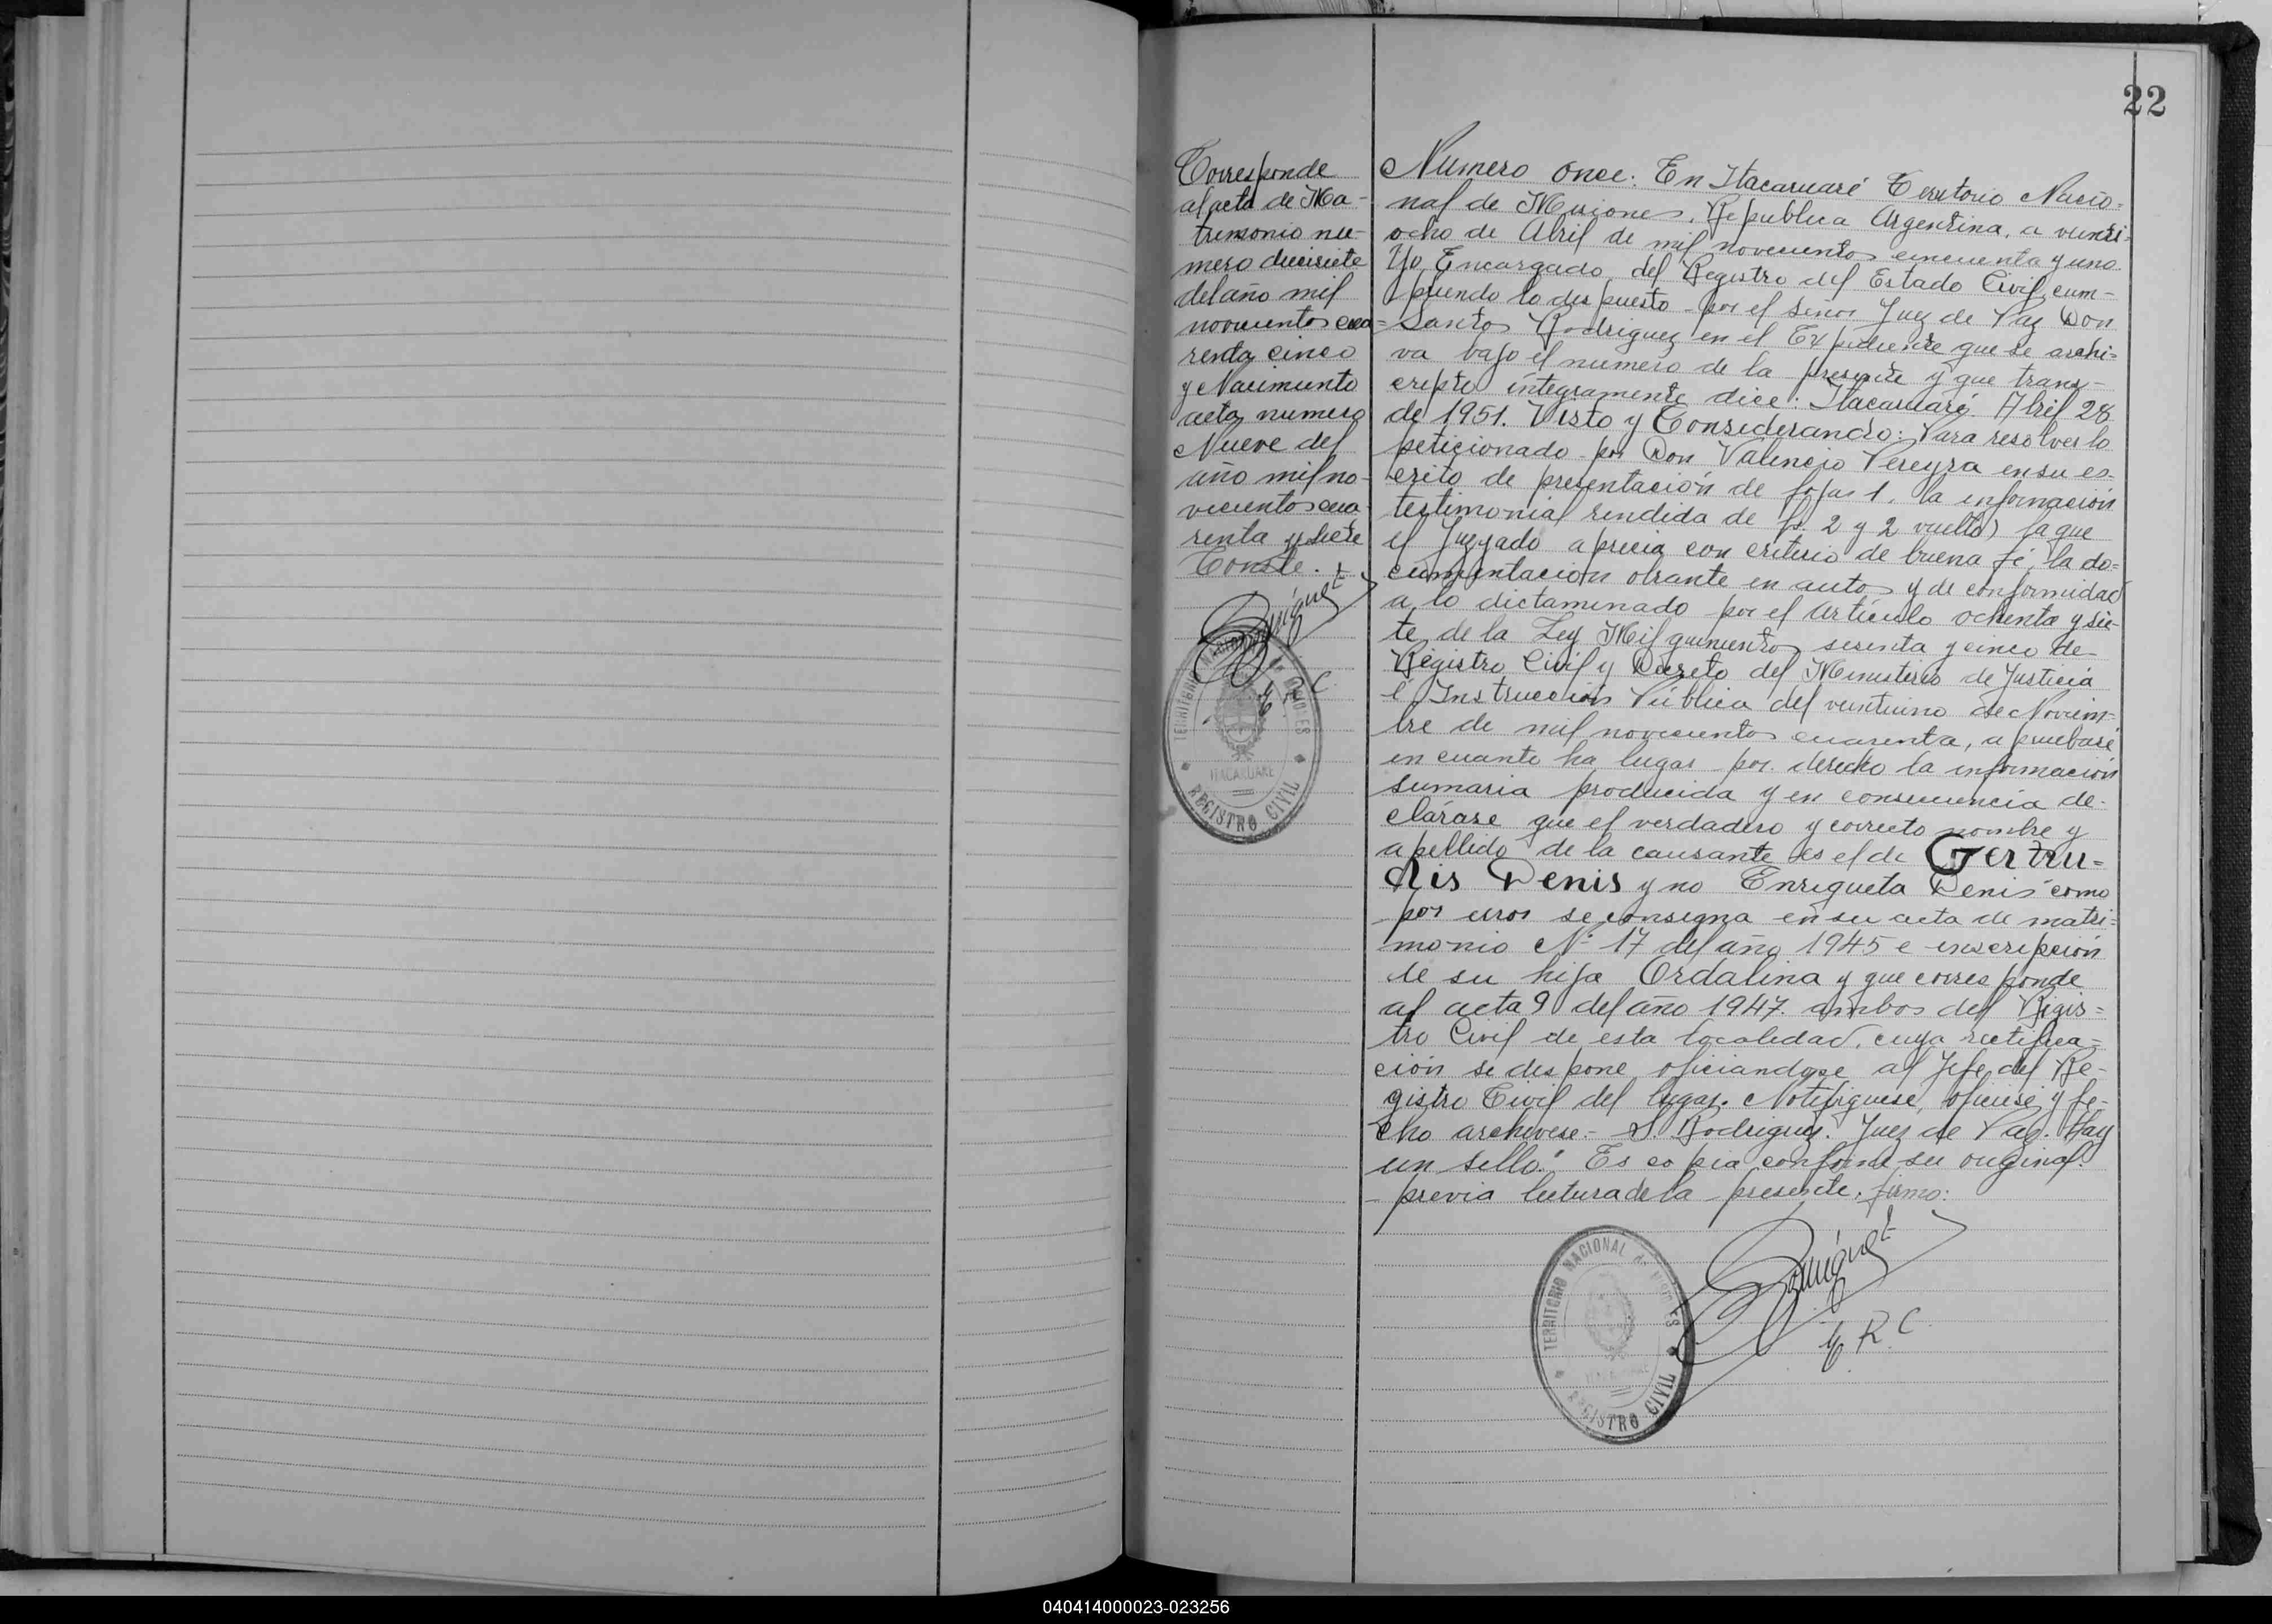 22
Corresponde
al acta de Ma-
trimonio nu-
mero diecisiete
del año mil
novecientos cua=
renta cinco
y Nacimiento
acta numero
Nueve del
año mil no-
vecientos cua
renta y siete
Conste.
TERRITORIO NACIONAL DE MISIONES
ITACARUARE
REGISTRO CIVIL
Numero once: En Itacaruaré Territorio Nacio=
nal de Misiones, Republica Argentina, a veinti-
ocho de Abril de mil novecientos cincuenta y uno.
Yo, Encargado del Registro del Estado Civil, cum-
pliendo lo dispuesto por el señor Juez de Paz Don
Santos Rodriguez en el Expediente que se archi=
va bajo el numero de la presente y que trans-
cripto integramente dice: Itacaruaré Abril 28
de 1951. Visto y Considerando: Para resolver lo
peticionado por Don Valencio Pereyra en su es-
crito de presentación de fojas 1. la información
testimonial rendida de fs. 2 y 2 vuelta) la que
el Juzgado aprecia con criterio de buena fé, la do=
cumentación obrante en autos y de conformidad
a lo dictaminado por el artículo ochenta y sie-
te, de la Ley Mil quinientos sesenta y cinco de
Registro Civil y Decreto del Ministerio de Justicia
é Instrucción Pública del veintiuno de Noviem-
bre de mil novecientos cuarenta, apruebase
en cuanto ha lugar por derecho la información
sumaria producida y en consecuencia de-
clárase que el verdadero y correcto nombre y
apellido de la causante es el de Gertru=
dis Denis y no Enriqueta Denis como
por error se consigna en su acta de matri=
monio Nº 17 del año 1945 e inscripción
de su hija Ordalina y que corresponde
al acta 9 del año 1947. ambos del Regis=
tro Civil de esta localidad, cuya rectifica=
ción se dispone oficiandose al Jefe del Re-
gistro Civil del lugar. Notifiquese, oficiese y fe-
cho archivese.- S. Rodriguez. Juez de Paz. Hay
un sello." Es copia conforme su original.
previa lectura de la presente, firmo:
TERRITORIO NACIONAL DE MISIONES
ITACARUARE
REGISTRO CIVIL
E. R. C.
040414000023-023256